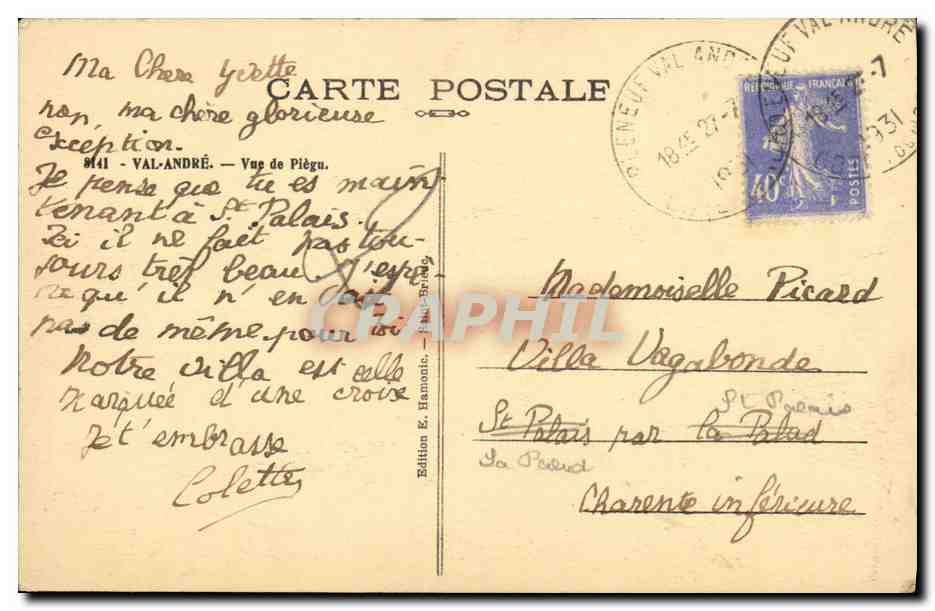 Ma Chere Yvette
CARTE POSTALE
non, ma chère glorieuse
exception.
8141 - VAL-ANDRÉ. — Vue de Piégu.
Je pense que tu es main
tenant à St Palais.
Ici il ne fait pas tou-
jours très beau. J'espè-
re qu'il n'en fait
pas de même pour toi
Notre villa est celle
marquée d'une croix
Je t'embrasse
Colette
Edition E. Hamonic. — Saint-Brieuc.
PLENEUF VAL ANDRÉ
18 45 27-7
1931
PLENEUF VAL ANDRÉ
1931
REPUBLIQUE FRANÇAISE
40c
POSTES
Mademoiselle Picard
Villa Vagabonde
St Palais
St Palais par la Palud
Charente inférieure
CPAPHIL